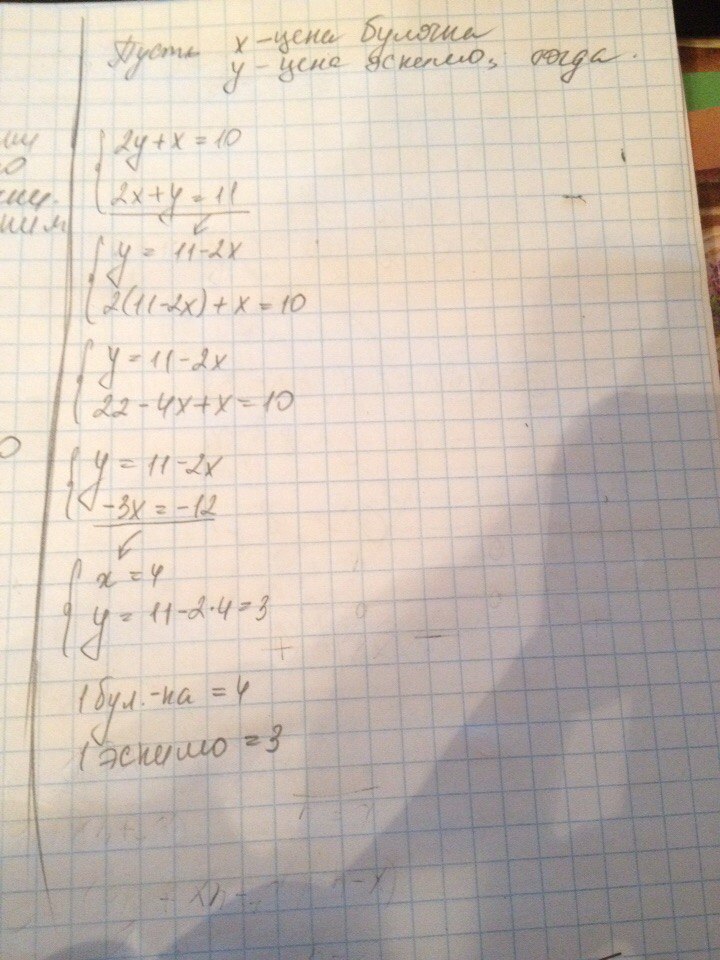 Пусть x - цена булочка
y - цена эскимо, тогда.
2y + x = 10
2x + y = 11
y = 11 - 2x
2(11 - 2x) + x = 10
y = 11 - 2x
22 - 4x + x = 10
y = 11 - 2x
-3x = -12
x = 4
y = 11 - 2 · 4 = 3
1 бул.-ка = 4
1 эскимо = 3